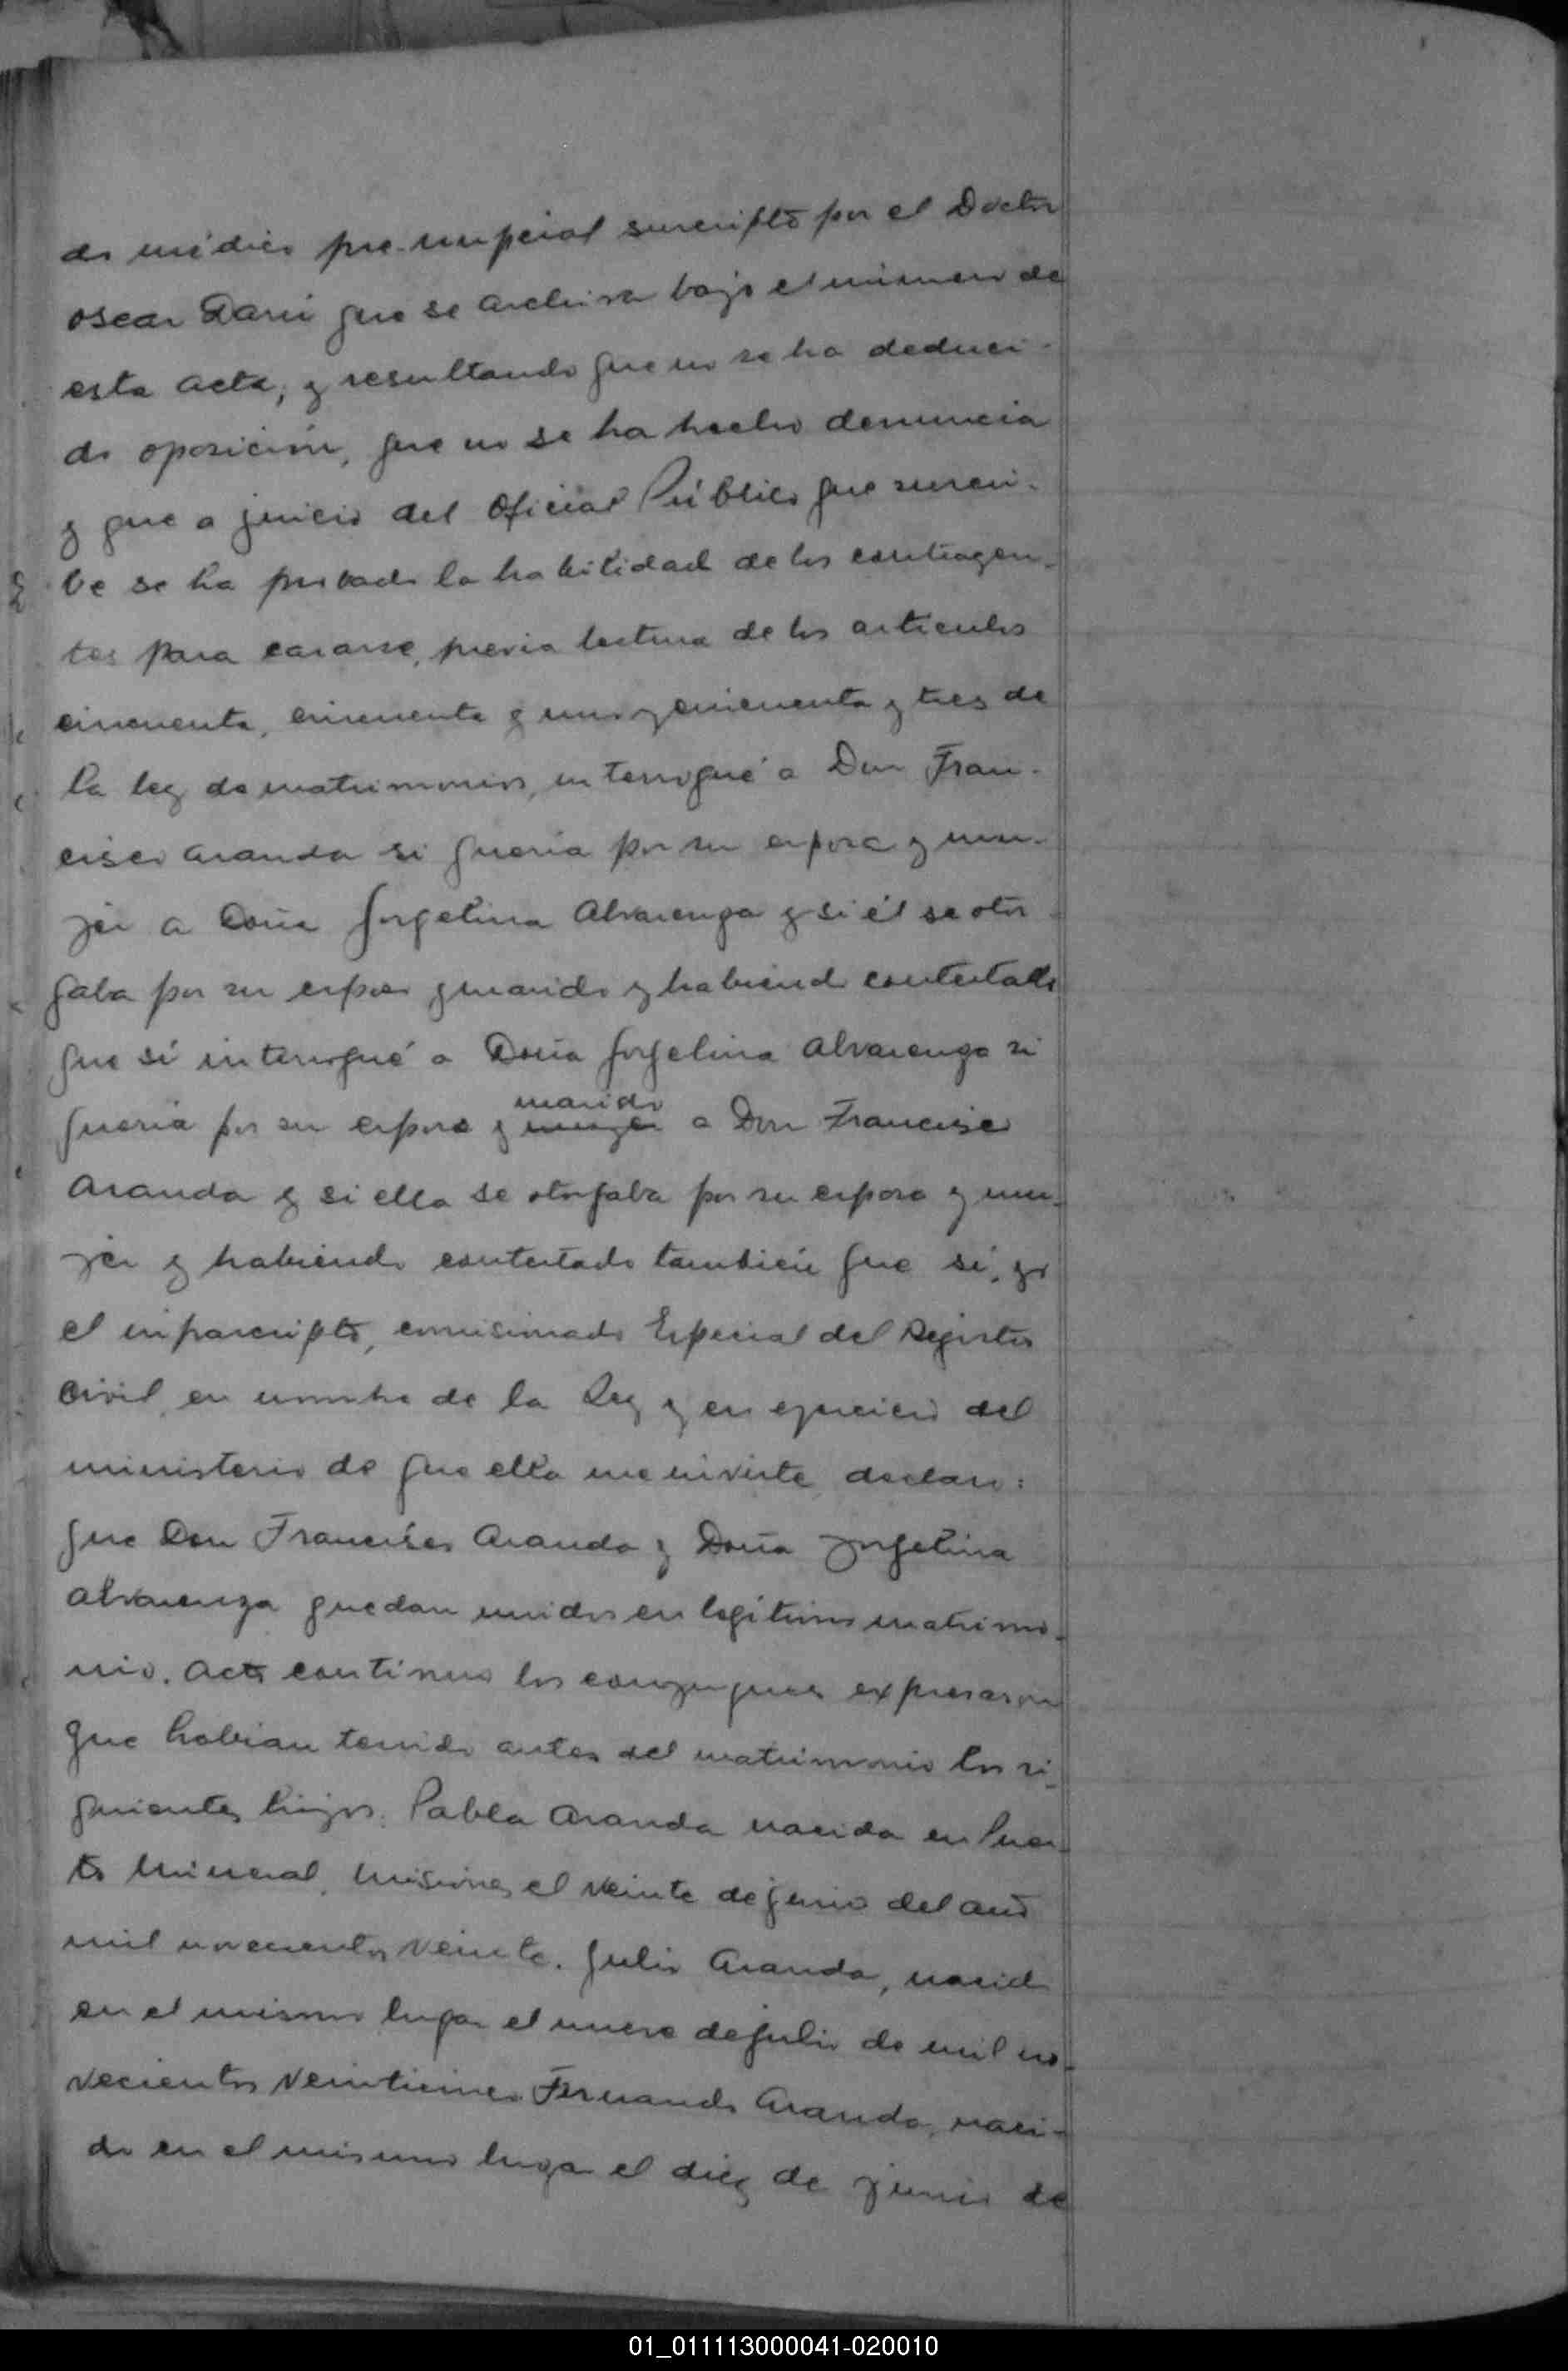 do médico pre-nupcial suscripto por el Doctor
Oscar Darú que se archiva bajo el número de
esta acta, y resultando que no se ha deduci-
do oposición, que no se ha hecho denuncia
y que a juicio del Oficial Público que suscri-
be se ha probado la habilidad de los contrayen-
tes para casarse, previa lectura de los artículos
cincuenta, cincuenta y uno y cincuenta y tres de
la ley de matrimonios, interrogué a Don Fran-
cisco Aranda si quería por su esposa y mu-
jer a Doña Jorgelina Alvarenga y si él se otor-
gaba por su esposo y marido y habiendo contestado
que sí interrogué a Doña Jorgelina Alvarenga si
quería por su esposo y mujer marido a Don Francisco
Aranda y si ella se otorgaba por su esposa y mu-
jer y habiendo contestado también que sí, yo
el infrascripto, comisionado Especial del Registro
Civil, en nombre de la Ley y en ejercicio del
ministerio de que ella me inviste declaro:
que Don Francisco Aranda y Doña Jorgelina
Alvarenga quedan unidos en legítimo matrimo-
nio. Acto continuo los conyugues expresaron
que habían tenido antes del matrimonio los si-
guientes hijos: Pabla Aranda nacida en Puer-
to Mineral, Misiones el veinte de junio del año
mil novecientos veinte. Julio Aranda, nacido
en el mismo lugar el nueve de julio de mil no-
vecientos veinticinco Fernando Aranda, naci-
do en el mismo lugar el diez de junio de
01_011113000041-020010